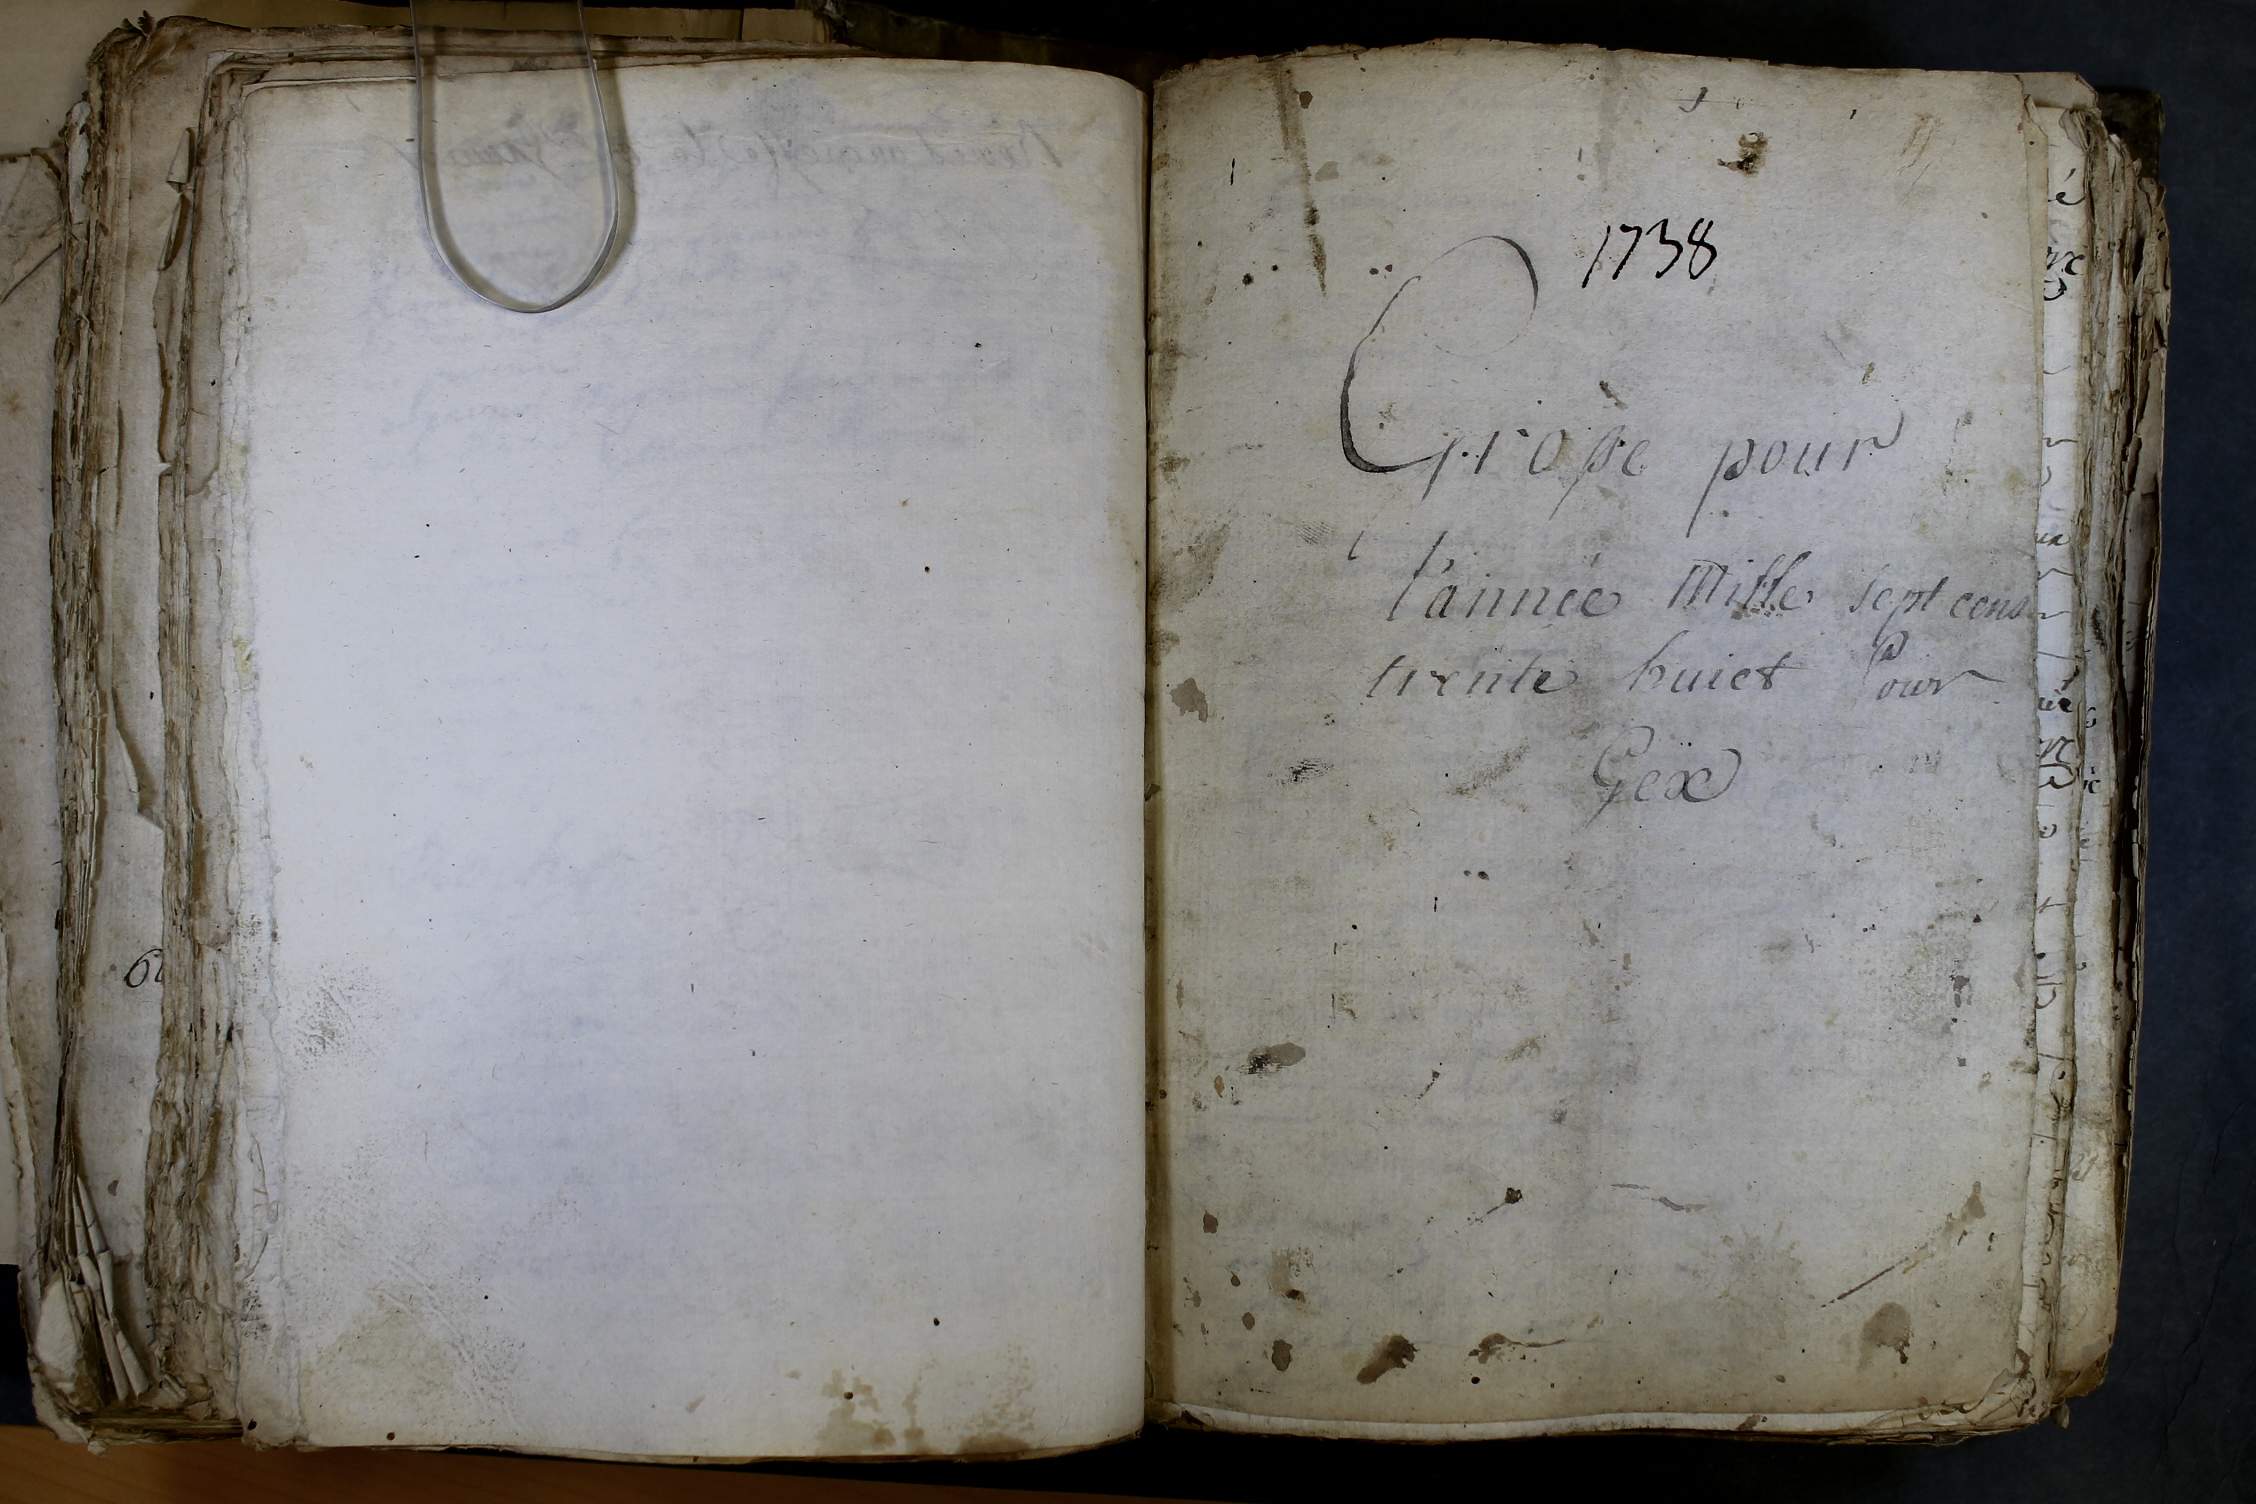 1738
Grosse pour
l'année Mille sept cens
trente huict Pour
Gex